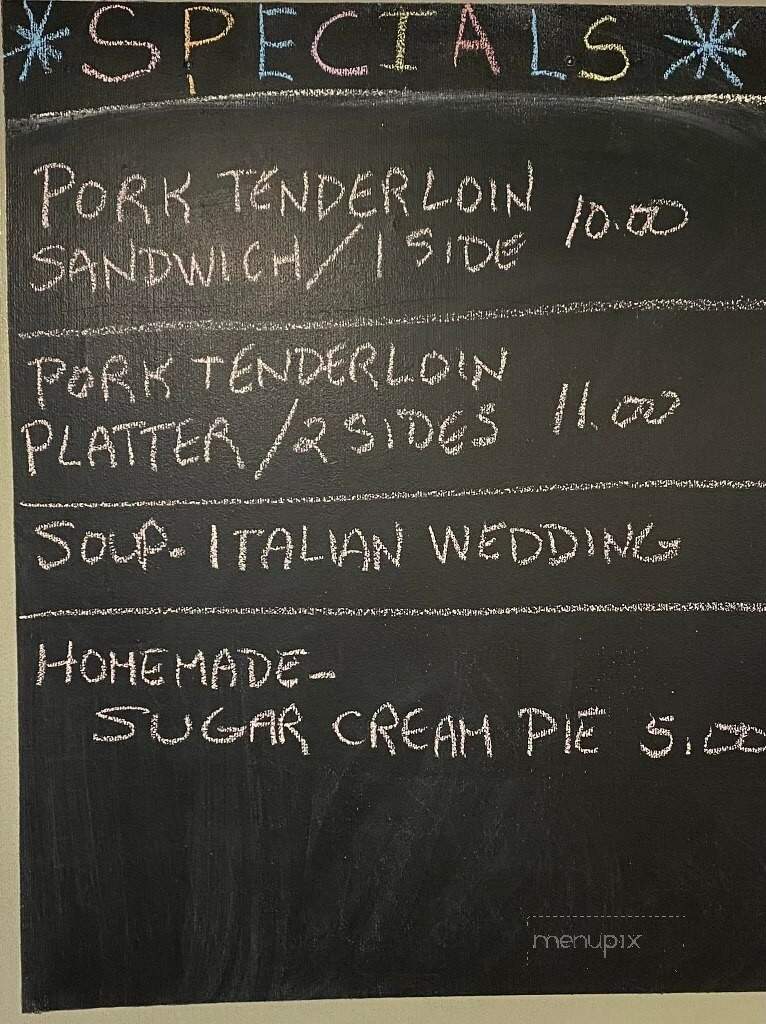 *SPECIALS*
PORK TENDERLOIN 10.00
SANDWICH/1 SIDE
PORK TENDERLOIN
PLATTER/2 SIDES 11.00
SOUP. ITALIAN WEDDING
HOMEMADE-
SUGAR CREAM PIE 5.00
menupix